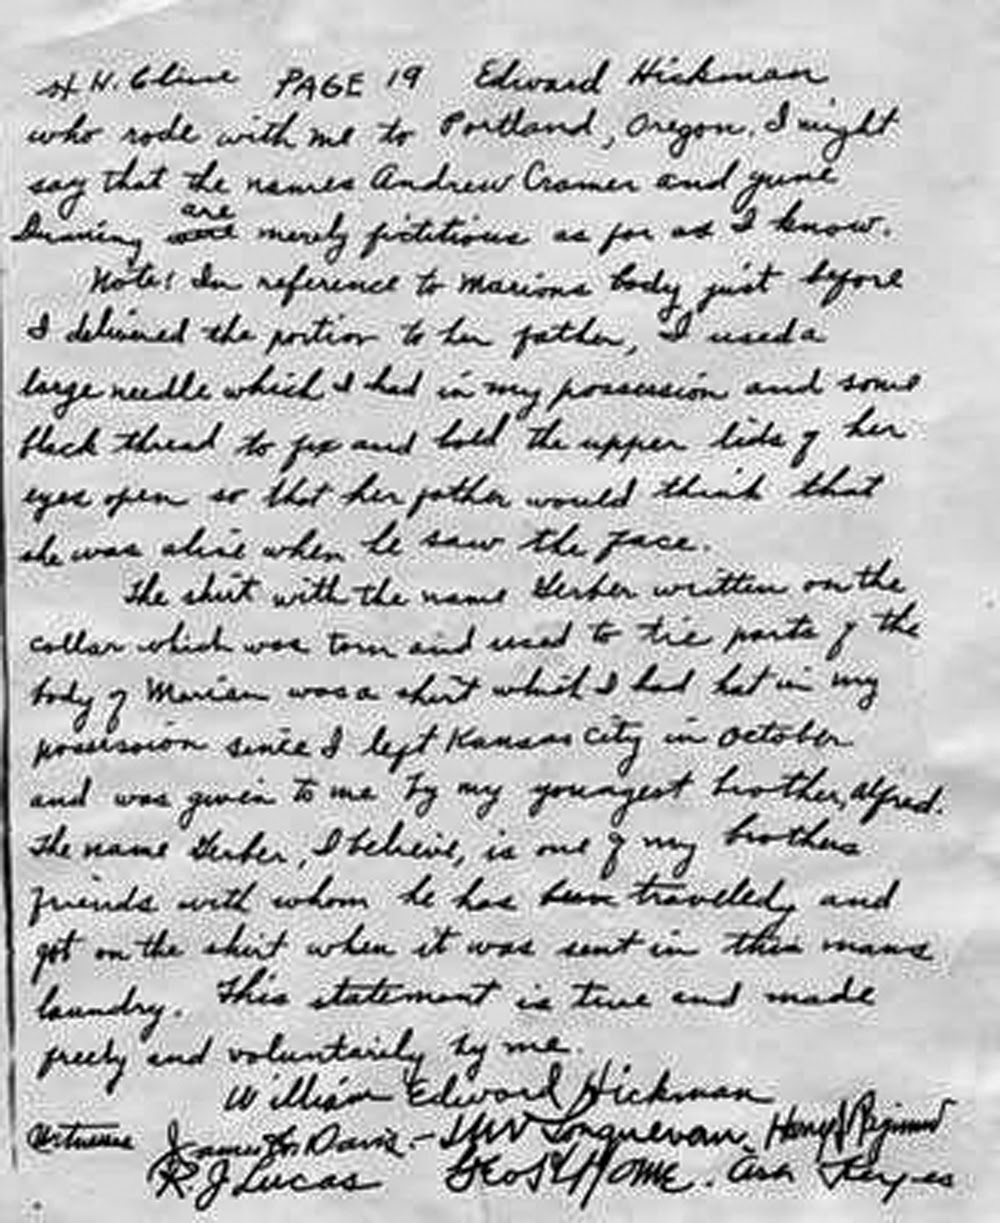 H. Cline PAGE 19 Edward Hickman
who rode with me to Portland, Oregon. I might
say that the names Andrew Cramer and June
Dunning are merely fictitious as far as I know.
Note! In reference to Marions body just before
I delivered the portion to her father, I used a
large needle which I had in my possession and some
black thread to fix and hold the upper lids of her
eyes open so that her father would think that
she was alive when he saw the face.
The shirt with the name Gerber written on the
collar which was torn and used to tie parts of the
body of Marian was a shirt which I had had in my
possession since I left Kansas City in October
and was given to me by my youngest brother, Alfred.
The name Gerber, I believe, is one of my brothers
friends with whom he has travelled, and
got on the shirt when it was sent in this mans
laundry. This statement is true and made
freely and voluntarily by me.
William Edward Hickman
Witnesses James H. Davis -
R. J Lucas Asa Keyes